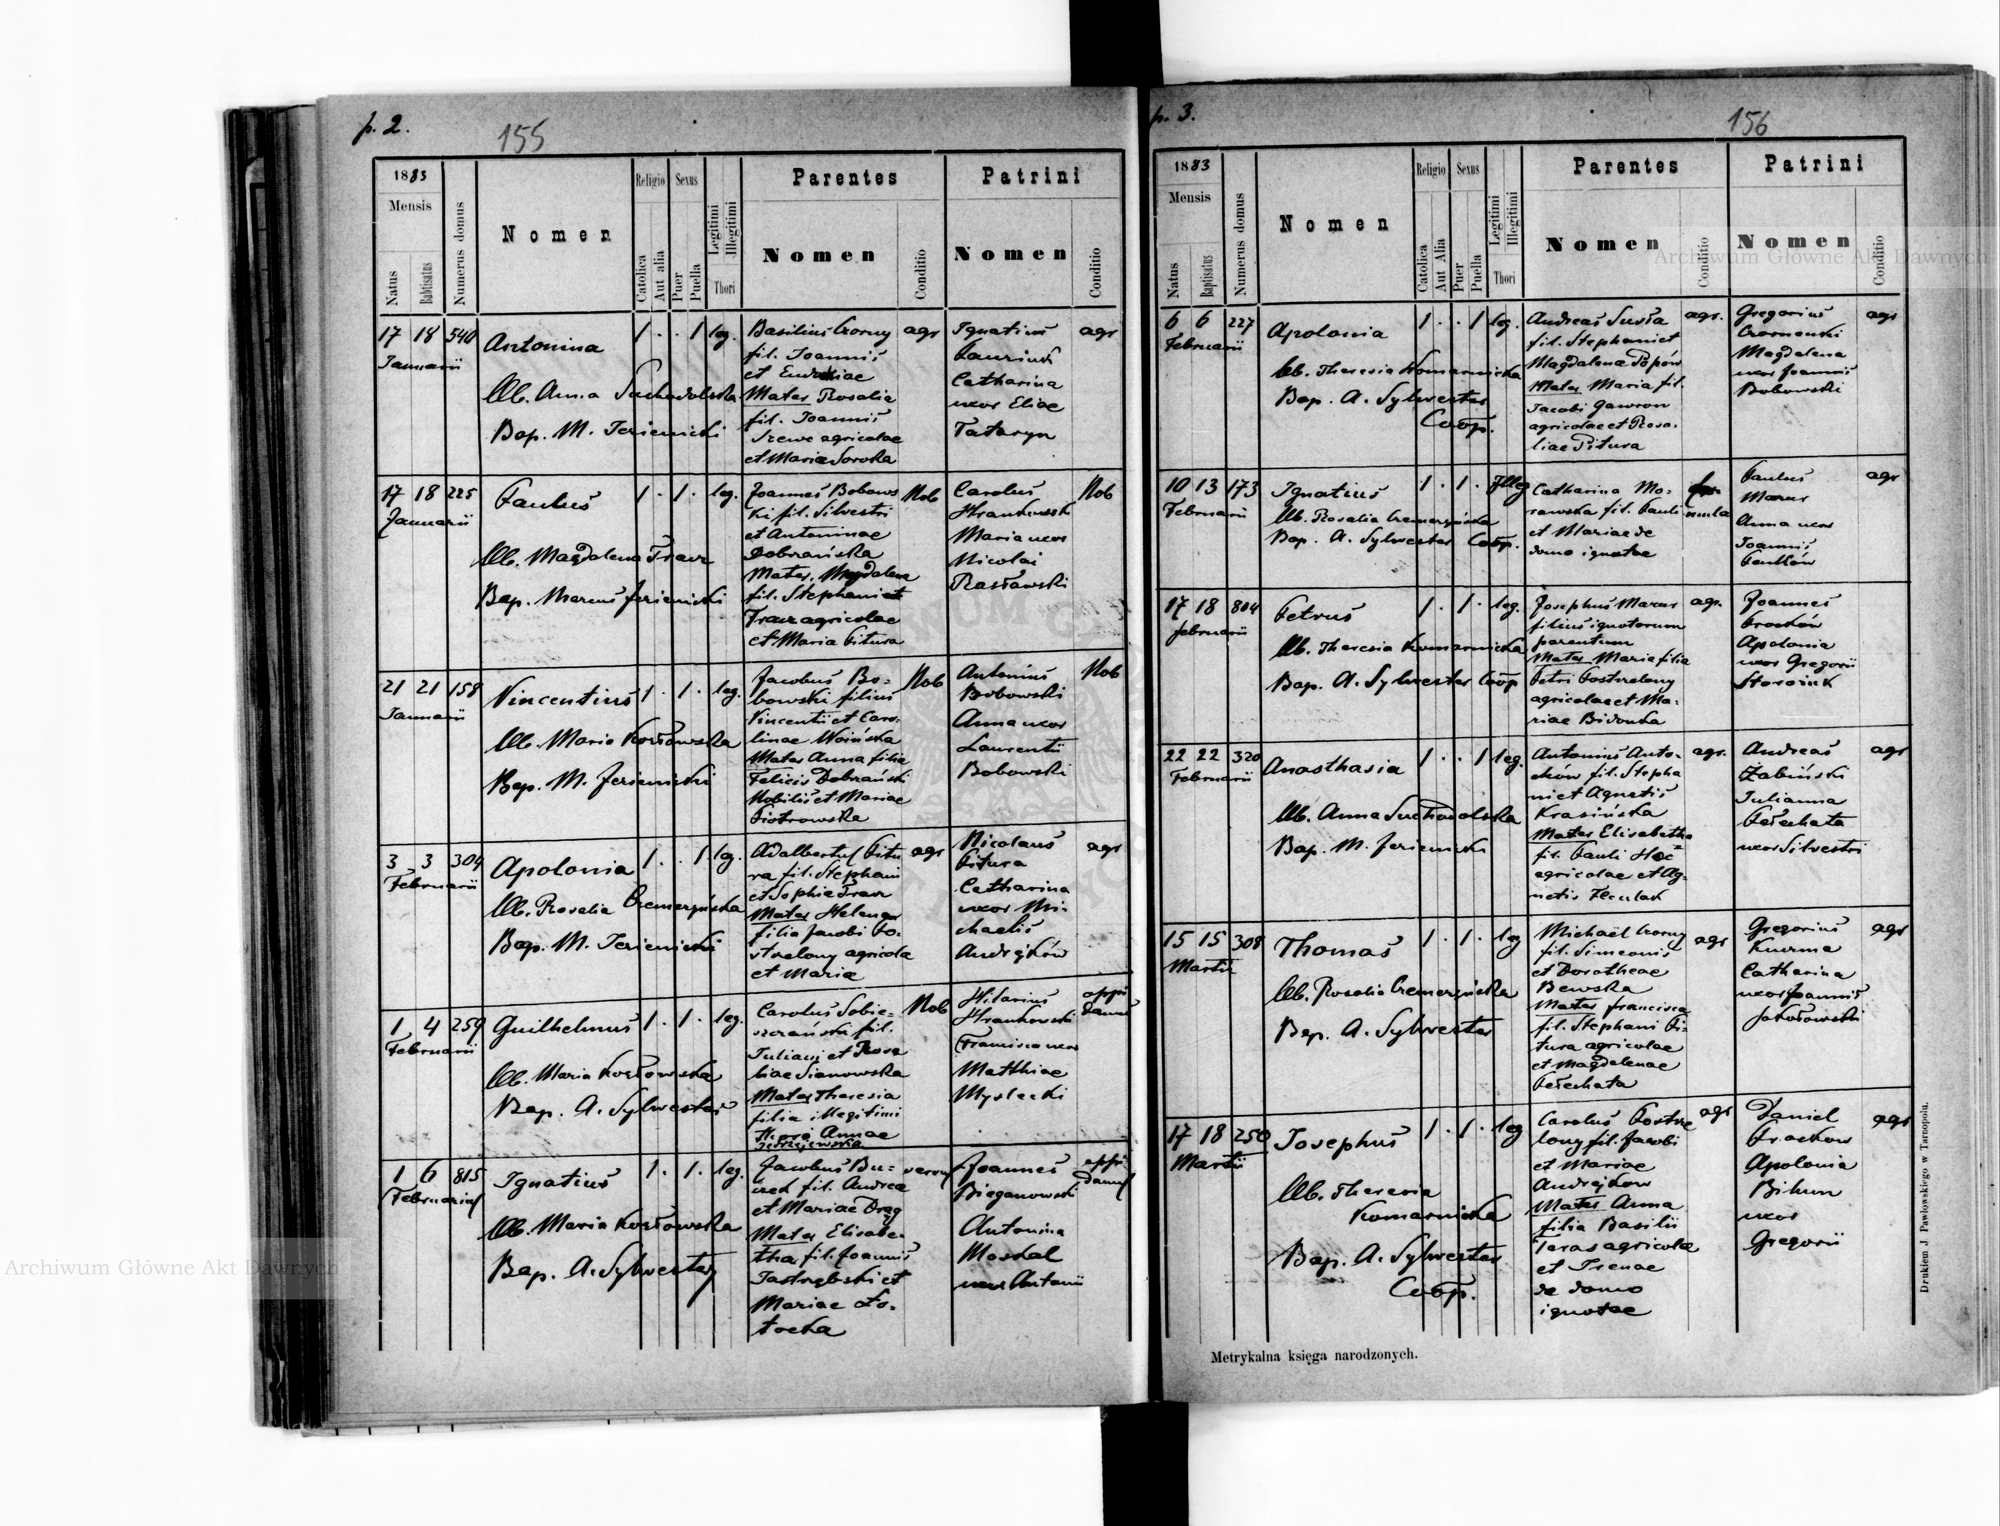 p. 2.
155
1883
Mensis
Natus
Babtisatus
Numerus domus
Nomen
Religio
Catolica
Aut alia
Sexus
Puer
Puella
Legitimi
Illegitimi
Thori
Parentes
Nomen
Conditio
Patrini
Nomen
Conditio
17 18 540
Januarii
Antonina
Ob. Anna Suchodolska
Bap. M. Jezienicki
1 . . 1 leg.
Basilius Czorny
fil. Joannis
et Eudokiae
Mater Rosalia
fil. Joannis
Szewc agricolae
et Maria Soroka
agr
Ignatius
Catharina
uxor Eliae
Tataryn
agr
17 18 225
Januarii
Paulus
Ob. Magdalena Fraur
Bap. Marcus Jezienicki
1 . 1 . leg.
Joannes Bobows
ki fil. Silvestri
et Antoninae
Dobrańska
Mater Magdalena
fil. Stephani et
agricolae
et Maria Pitura
Nob
Carolus
Hrankowski
Maria uxor
Nicolai
Rastawski
Nob
21 21 158
Januarii
Vincentius
Ob. Maria Kozłowska
Bap. M. Jezienicki
1 . 1 . leg.
Jacobus Bo-
bowski filius
Vincentii et Caro-
linae Woińska
Mater Anna filia
Felicis Dobrański
Nobilis et Mariae
Piotrowska
Nob
Antonius
Bobowski
Anna uxor
Laurentii
Bobowski
Nob
3 3 304
Februarii
Apolonia
Ob. Rosalia Cremerzyńska
Bap. M. Jezienicki
1 . . 1 leg.
Adalbertus Pitu
ra fil. Stephani
et Sophia
Mater Helena
filia Jacobi Po-
strelony agricola
et Maria
agr
Nicolaus
Pitura
Catharina
uxor Mi-
chaelis
Andrijków
agr
1 4 259
Februarii
Guilhelmus
Ob. Maria Kozłowska
Bap. A. Sylwester
1 . 1 . leg.
Carolus Sobie-
szczański fil.
Juliani et Rosa
liae Sianowska
Mater Theresia
filia illegitimi
thori Annae
Nob
Hilarius
Hrankowski
Francisca uxor
Matthiae
Myslecki
oppi
danus
1 6 815
Februarius
Ignatius
Ob. Maria Kozłowska
Bap. A. Sylwester
1 . 1 . leg.
Jacobus Bu-
fil. Andrea
et Mariae Drag
Mater Elisabe-
tha fil. Joannis
Jastrzębski et
Mariae Zo-
Joannes
Bieganowski
Antonina
Moskal
uxor Antonii
oppi
danus
p. 3.
156
1883
Mensis
Natus
Baptisatus
Numerus domus
Nomen
Religio
Catolica
Aut Alia
Sexus
Puer
Puella
Legitimi
Illegitimi
Thori
Parentes
Nomen
Conditio
Patrini
Nomen
Conditio
6 6 227
Februarii
Apolonia
Ob. Theresia Komarnicka
Bap. A. Sylwester
Coop.
1 . . 1 leg.
Andreas Susła
fil. Stephani et
Magdalena Popów
Mater Maria fil.
Jacobi Gawron
agricolae et Rosa-
liae Pitura
agr.
Gregorius
Magdalena
uxor Joannis
Bobowski
agr
10 13 173
Februarii
Ignatius
Ob. Rosalia Cremerzyńska
Bap. A. Sylwester Coop.
1 . 1 . Illeg
Catharina Mo-
rawska fil. Pauli
et Mariae de
domo ignotae
famula
Paulus
Mazur
Anna uxor
Joannis
Pańków
agr
17 18 804
Februarii
Petrus
Ob. Theresia Komarnicka
Bap. A. Sylwester Coop
1 . 1 . leg.
Josephus Mazur
filius ignotorum
parentum
Mater Maria filia
Petri Postrelony
agricolae et Ma-
riae Bidonka
agr.
Joannes
Apolonia
uxor Gregorii
22 22 320
Februarii
Anasthasia
Ob. Anna Suchodolska
Bap. M. Jezienicki
1 . . 1 leg.
Antonius Anto-
chów fil. Stepha
ni et Agnetis
Krasińska
Mater Elisabetha
fil. Pauli Hoc
agricolae et Ag-
netis
agr.
Andreas
Żabiński
Julianna
Pełechata
uxor Silvestri
agr
15 15 308
Martii
Thomas
Ob. Rosalia Cremerzyńska
Bap. A. Sylwester
1 . 1 . leg
Michaël Czorny
fil. Simeonis
et Dorotheae
Bewska
Mater Francisca
fil. Stephani Pi-
tura agricolae
et Magdalenae
Pełechata
agr
Gregorius
Kuzma
Catharina
uxor Joannis
Sokołowski
agr
17 18 250
Martii
Josephus
Ob. Theresia
Komarnicka
Bap. A. Sylwester
Coop.
1 . 1 . leg
Carolus Postre
lony fil. Jacobi
et Mariae
Andrejkow
Mater Anna
filia Basilii
Taras agricolae
et Irenae
de domo
ignotae
agr
Daniel
Apolonia
Bihun
uxor
Gregorii
agr
Metrykalna księga narodzonych.
Drukiem J. Pawłowskiego w Tarnopolu.
Archiwum Główne Akt Dawnych
Archiwum Główne Akt Dawnych